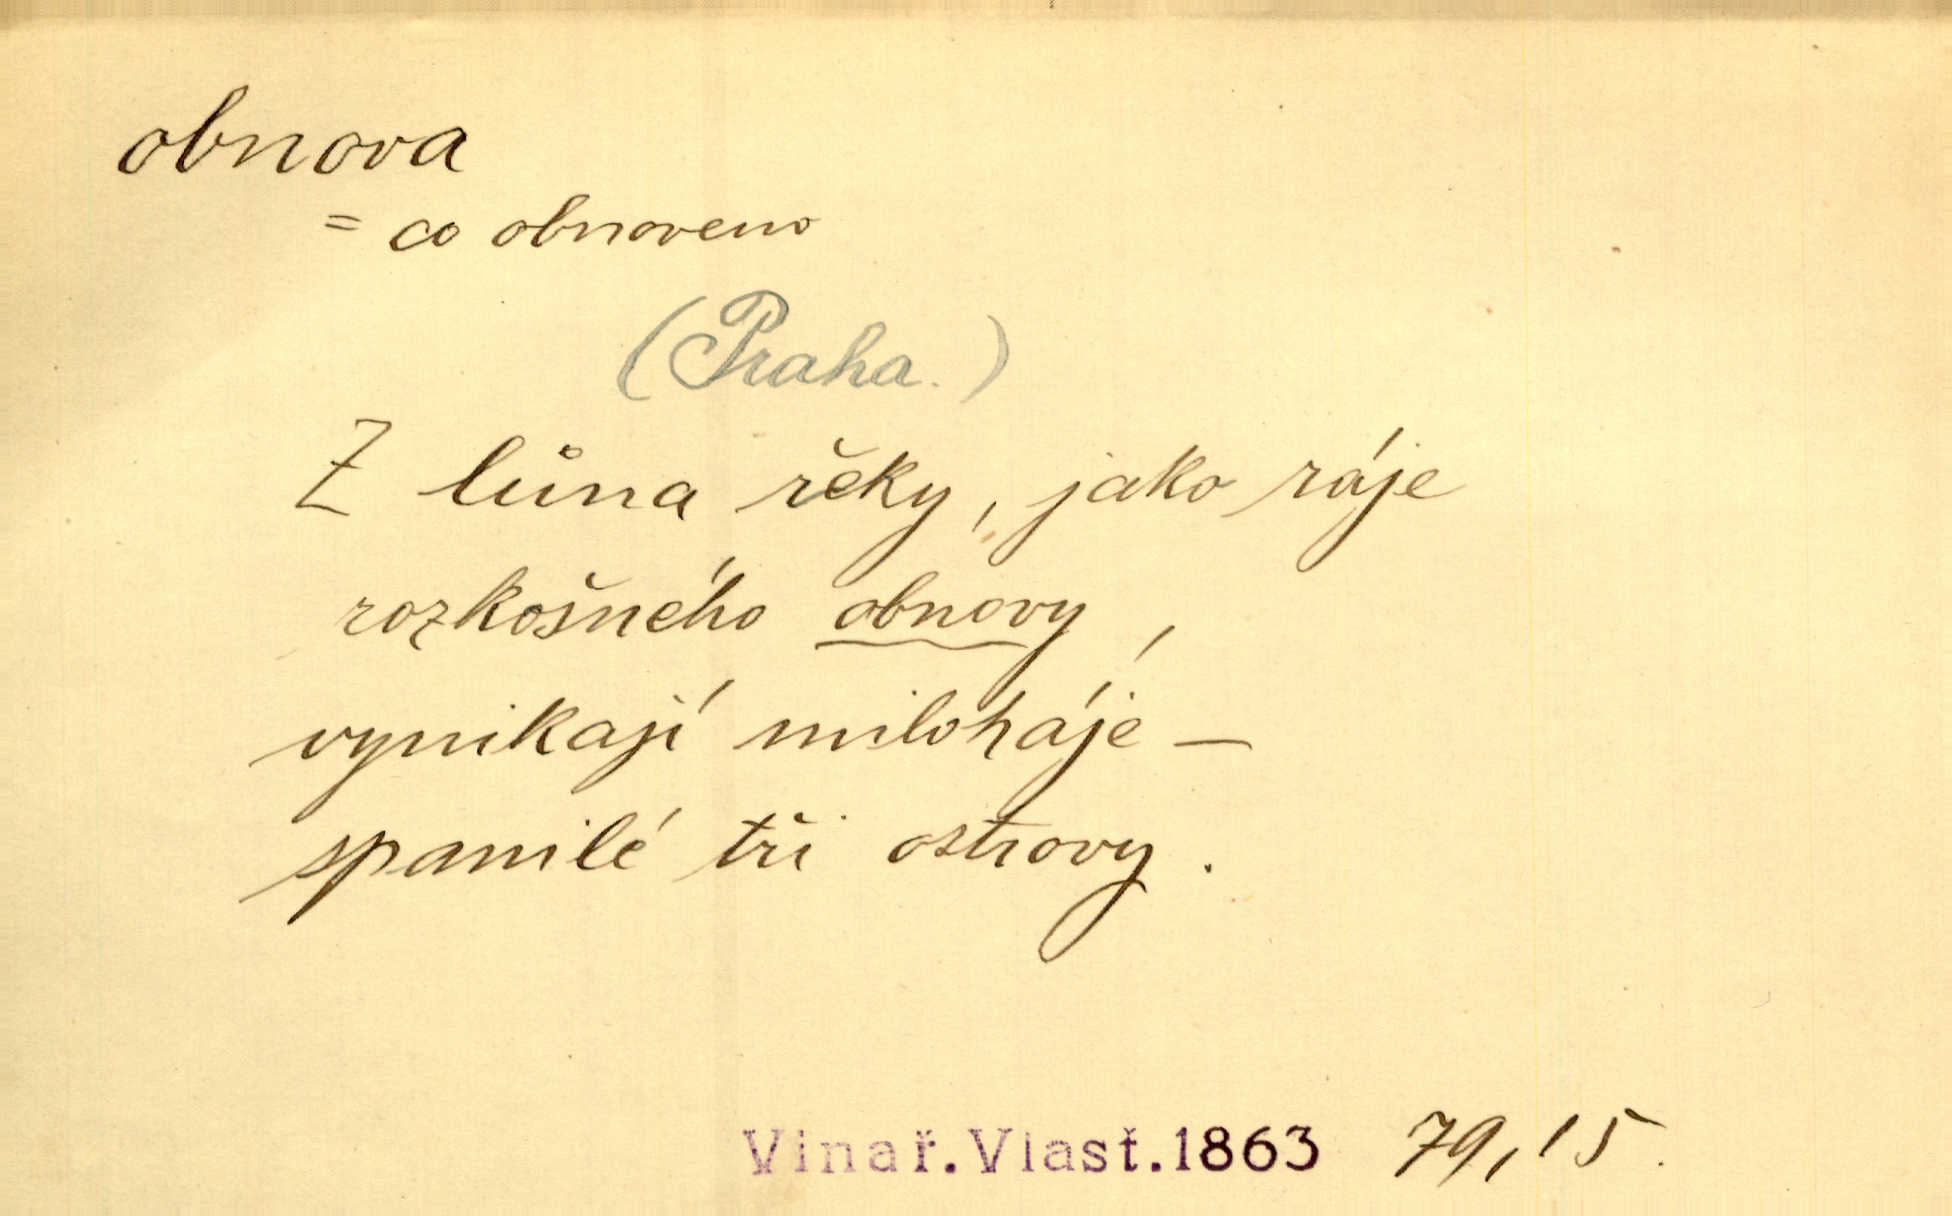 obnova
= co obnoveno
(Praha.)
Z lůna řeky, jako ráje
rozkošného obnovy,
vynikají miloháje —
spanilé tři ostrovy.
Vinař. Vlasť. 1863 79,15.